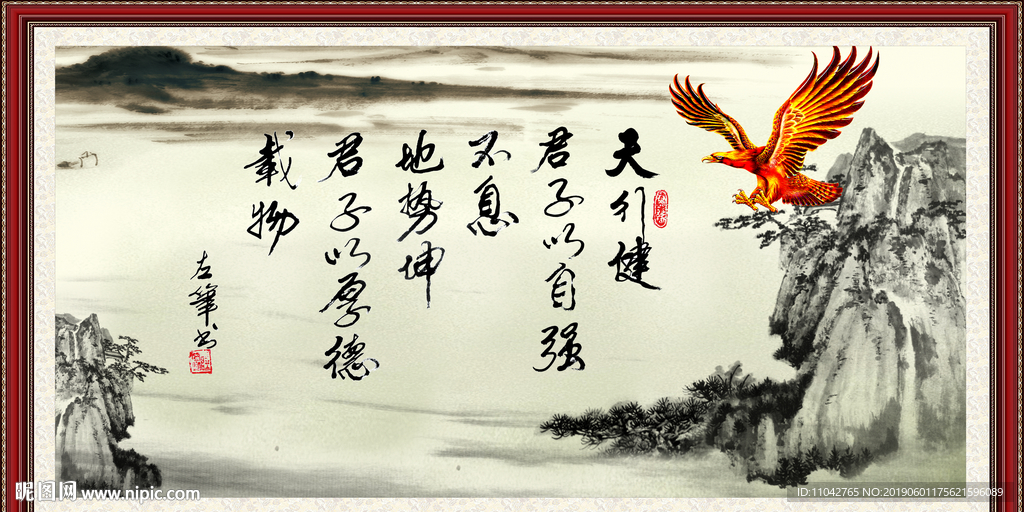 天行健
君子以自强
不息
地势坤
君子以厚德
载物
左筆书
昵图网 www.nipic.com
ID:11042765 NO:20190601175621596089